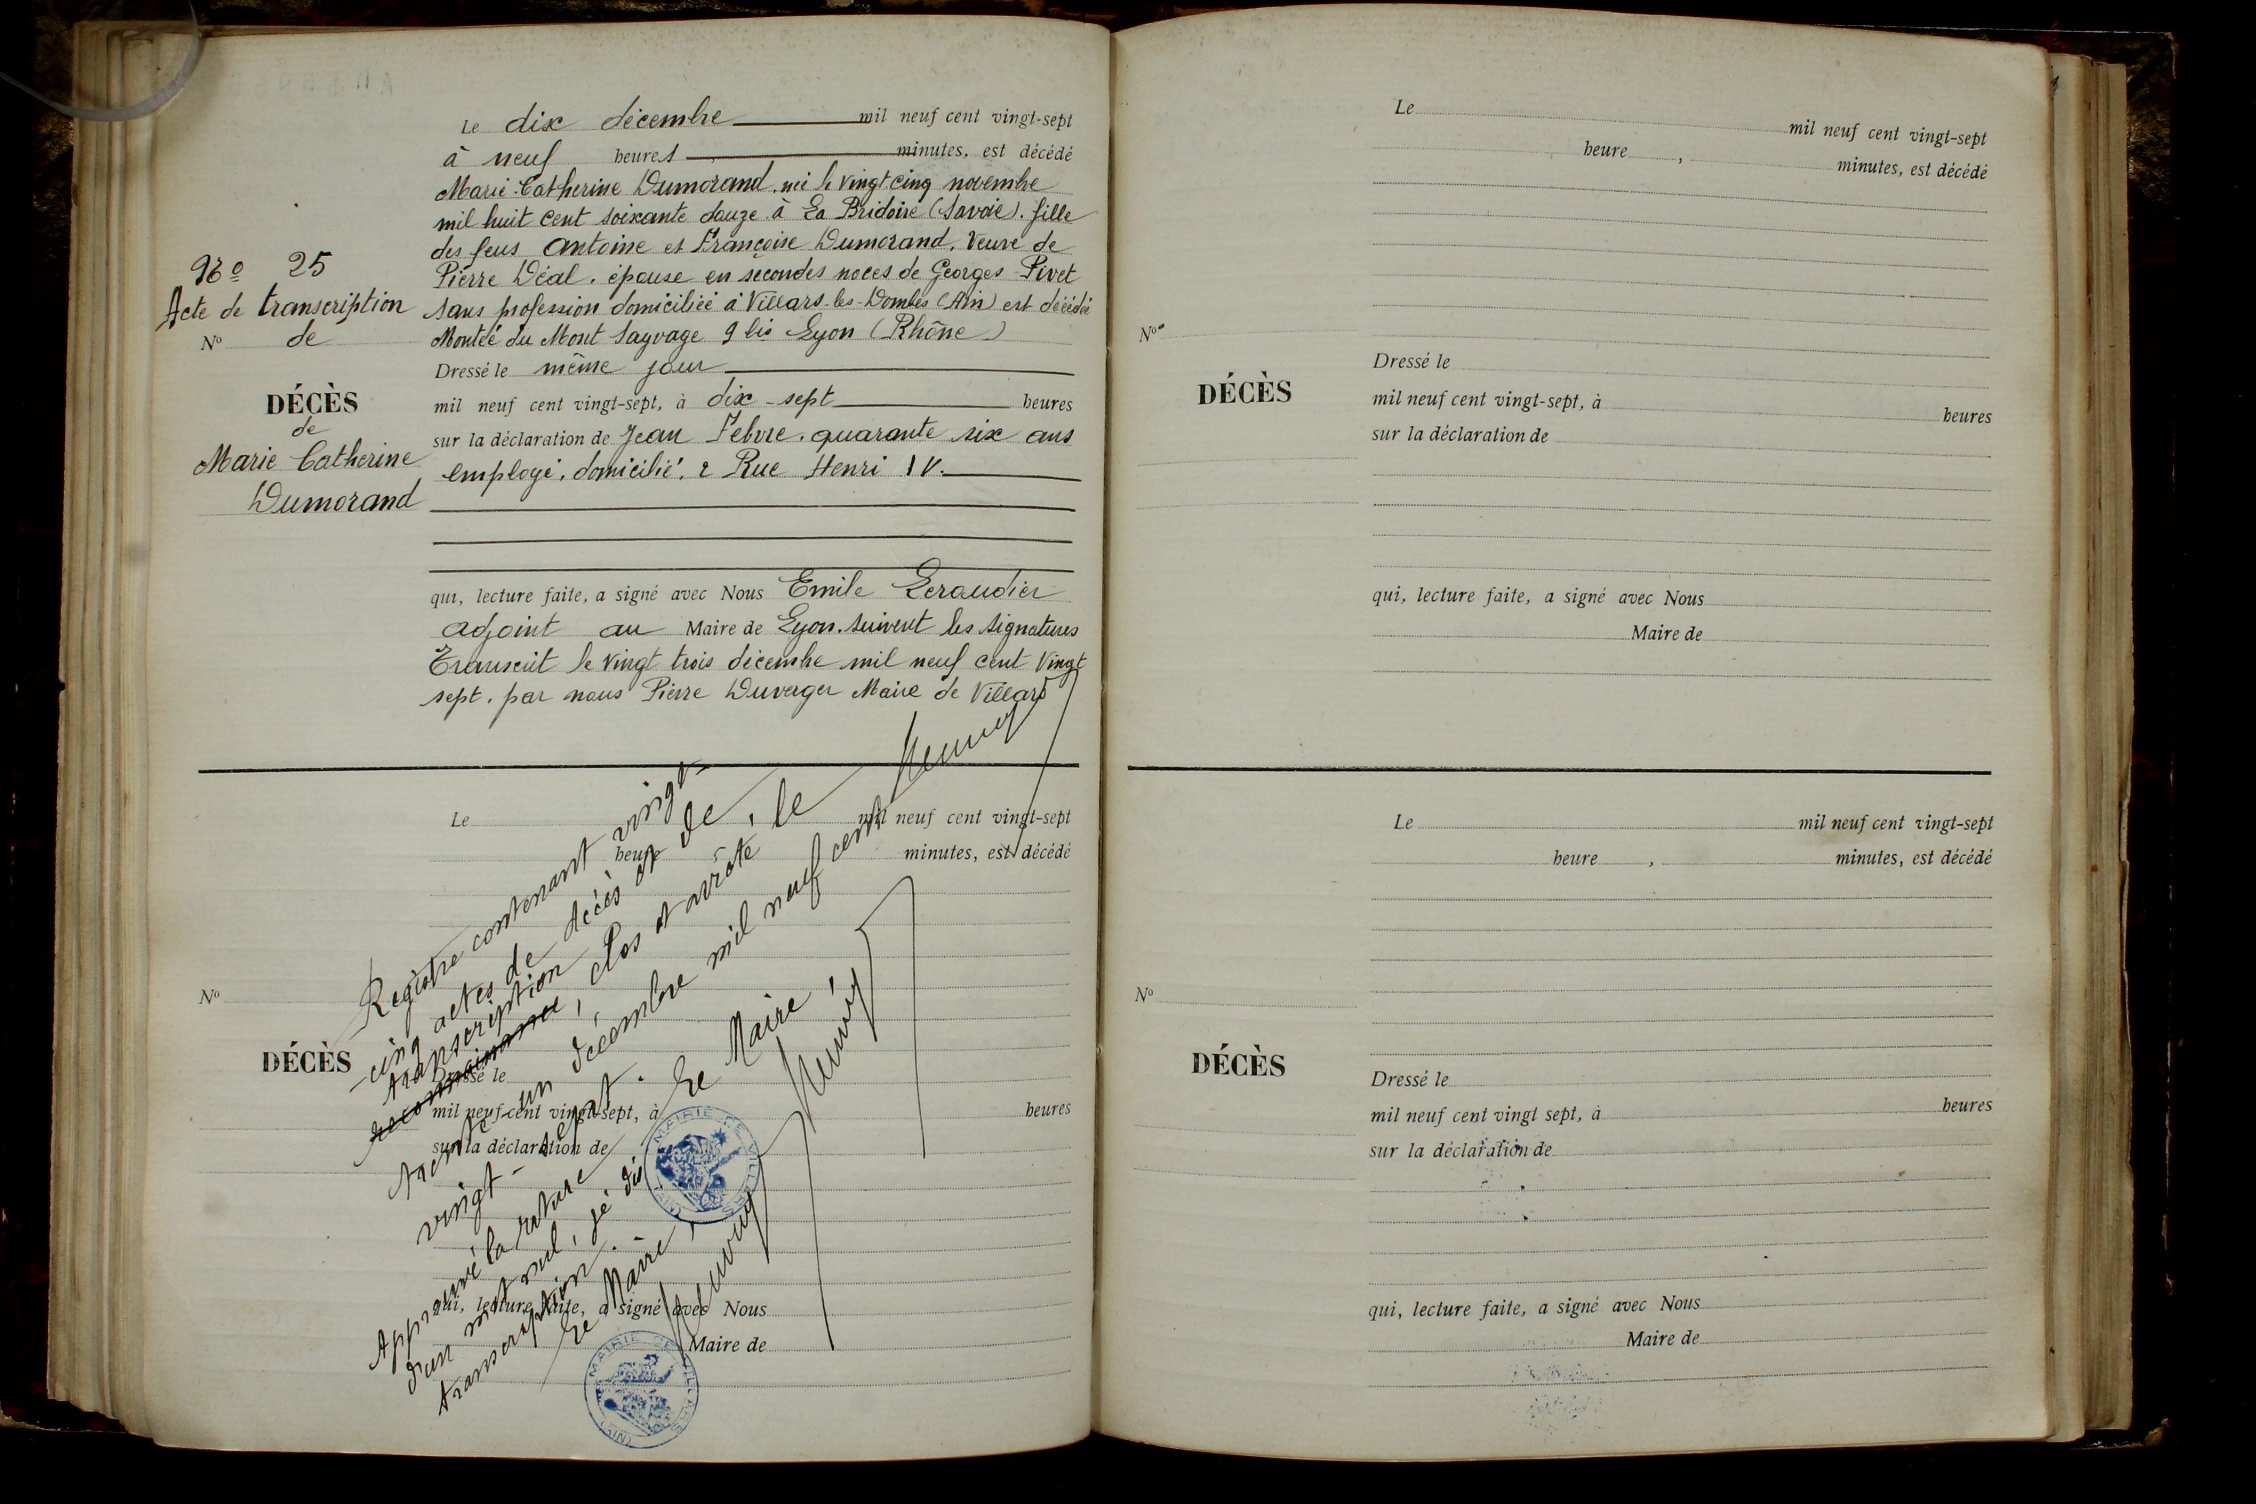 Nº 25
Acte de transcription
Nº de
DÉCÈS
de
Marie Catherine
Dumorand
Le dix décembre mil neuf cent vingt-sept
à neuf heures minutes, est décédé
Marie-Catherine Dumorand, née le vingt cinq novembre
mil huit cent soixante douze à La Bridoire (Savoie). fille
des feus Antoine et Françoise Dumorand. Veuve de
Pierre Déal. épouse en secondes noces de Georges Pivet
sans profession domiciliée à Villars-les-Dombes (Ain) est décédée
Montée du Mont Sauvage 9 bis Lyon (Rhône)
Dressé le même jour
mil neuf cent vingt-sept, à dix-sept heures
sur la déclaration de Jean Febvre. quarante six ans
employé. domicilié. 2 Rue Henri IV.
qui, lecture faite, a signé avec Nous Emile Leraudier
adjoint au Maire de Lyon. suivent les signatures
Transcrit le vingt trois décembre mil neuf cent vingt
sept. par nous Pierre Duverger Maire de Villars
Le mil neuf cent vingt-sept
heure , minutes, est décédé
Nº
DÉCÈS
Dressé le
mil neuf cent vingt-sept, à heures
sur la déclaration de
qui, lecture faite, a signé avec Nous
Maire de
Registre contenant vingt-
-cinq actes de décès et de
transcription
reconnaissance, clos et arrêté, le
trente-un décembre mil neuf cent
vingt-sept.
Le Maire,
Approuvé la rature
d'un mot nul, je dis
transcription.
Le Maire,
MAIRIE DE VILLARS (AIN)
MAIRIE DE VILLARS (AIN)
Le mil neuf cent vingt-sept
heure , minutes, est décédé
Nº
DÉCÈS
Dressé le
mil neuf cent vingt-sept, à heures
sur la déclaration de
qui, lecture faite, a signé avec Nous
Maire de
Le mil neuf cent vingt-sept
heure , minutes, est décédé
Nº
DÉCÈS
Dressé le
mil neuf cent vingt sept, à heures
sur la déclaration de
qui, lecture faite, a signé avec Nous
Maire de